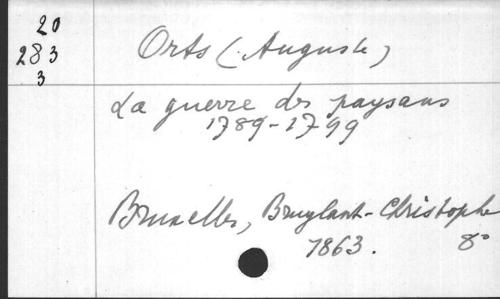 20
283
3
Orts (Auguste)
La guerre des paysans
1789-1799
Bruxelles, Bruylant-Christophe
1863. 8°